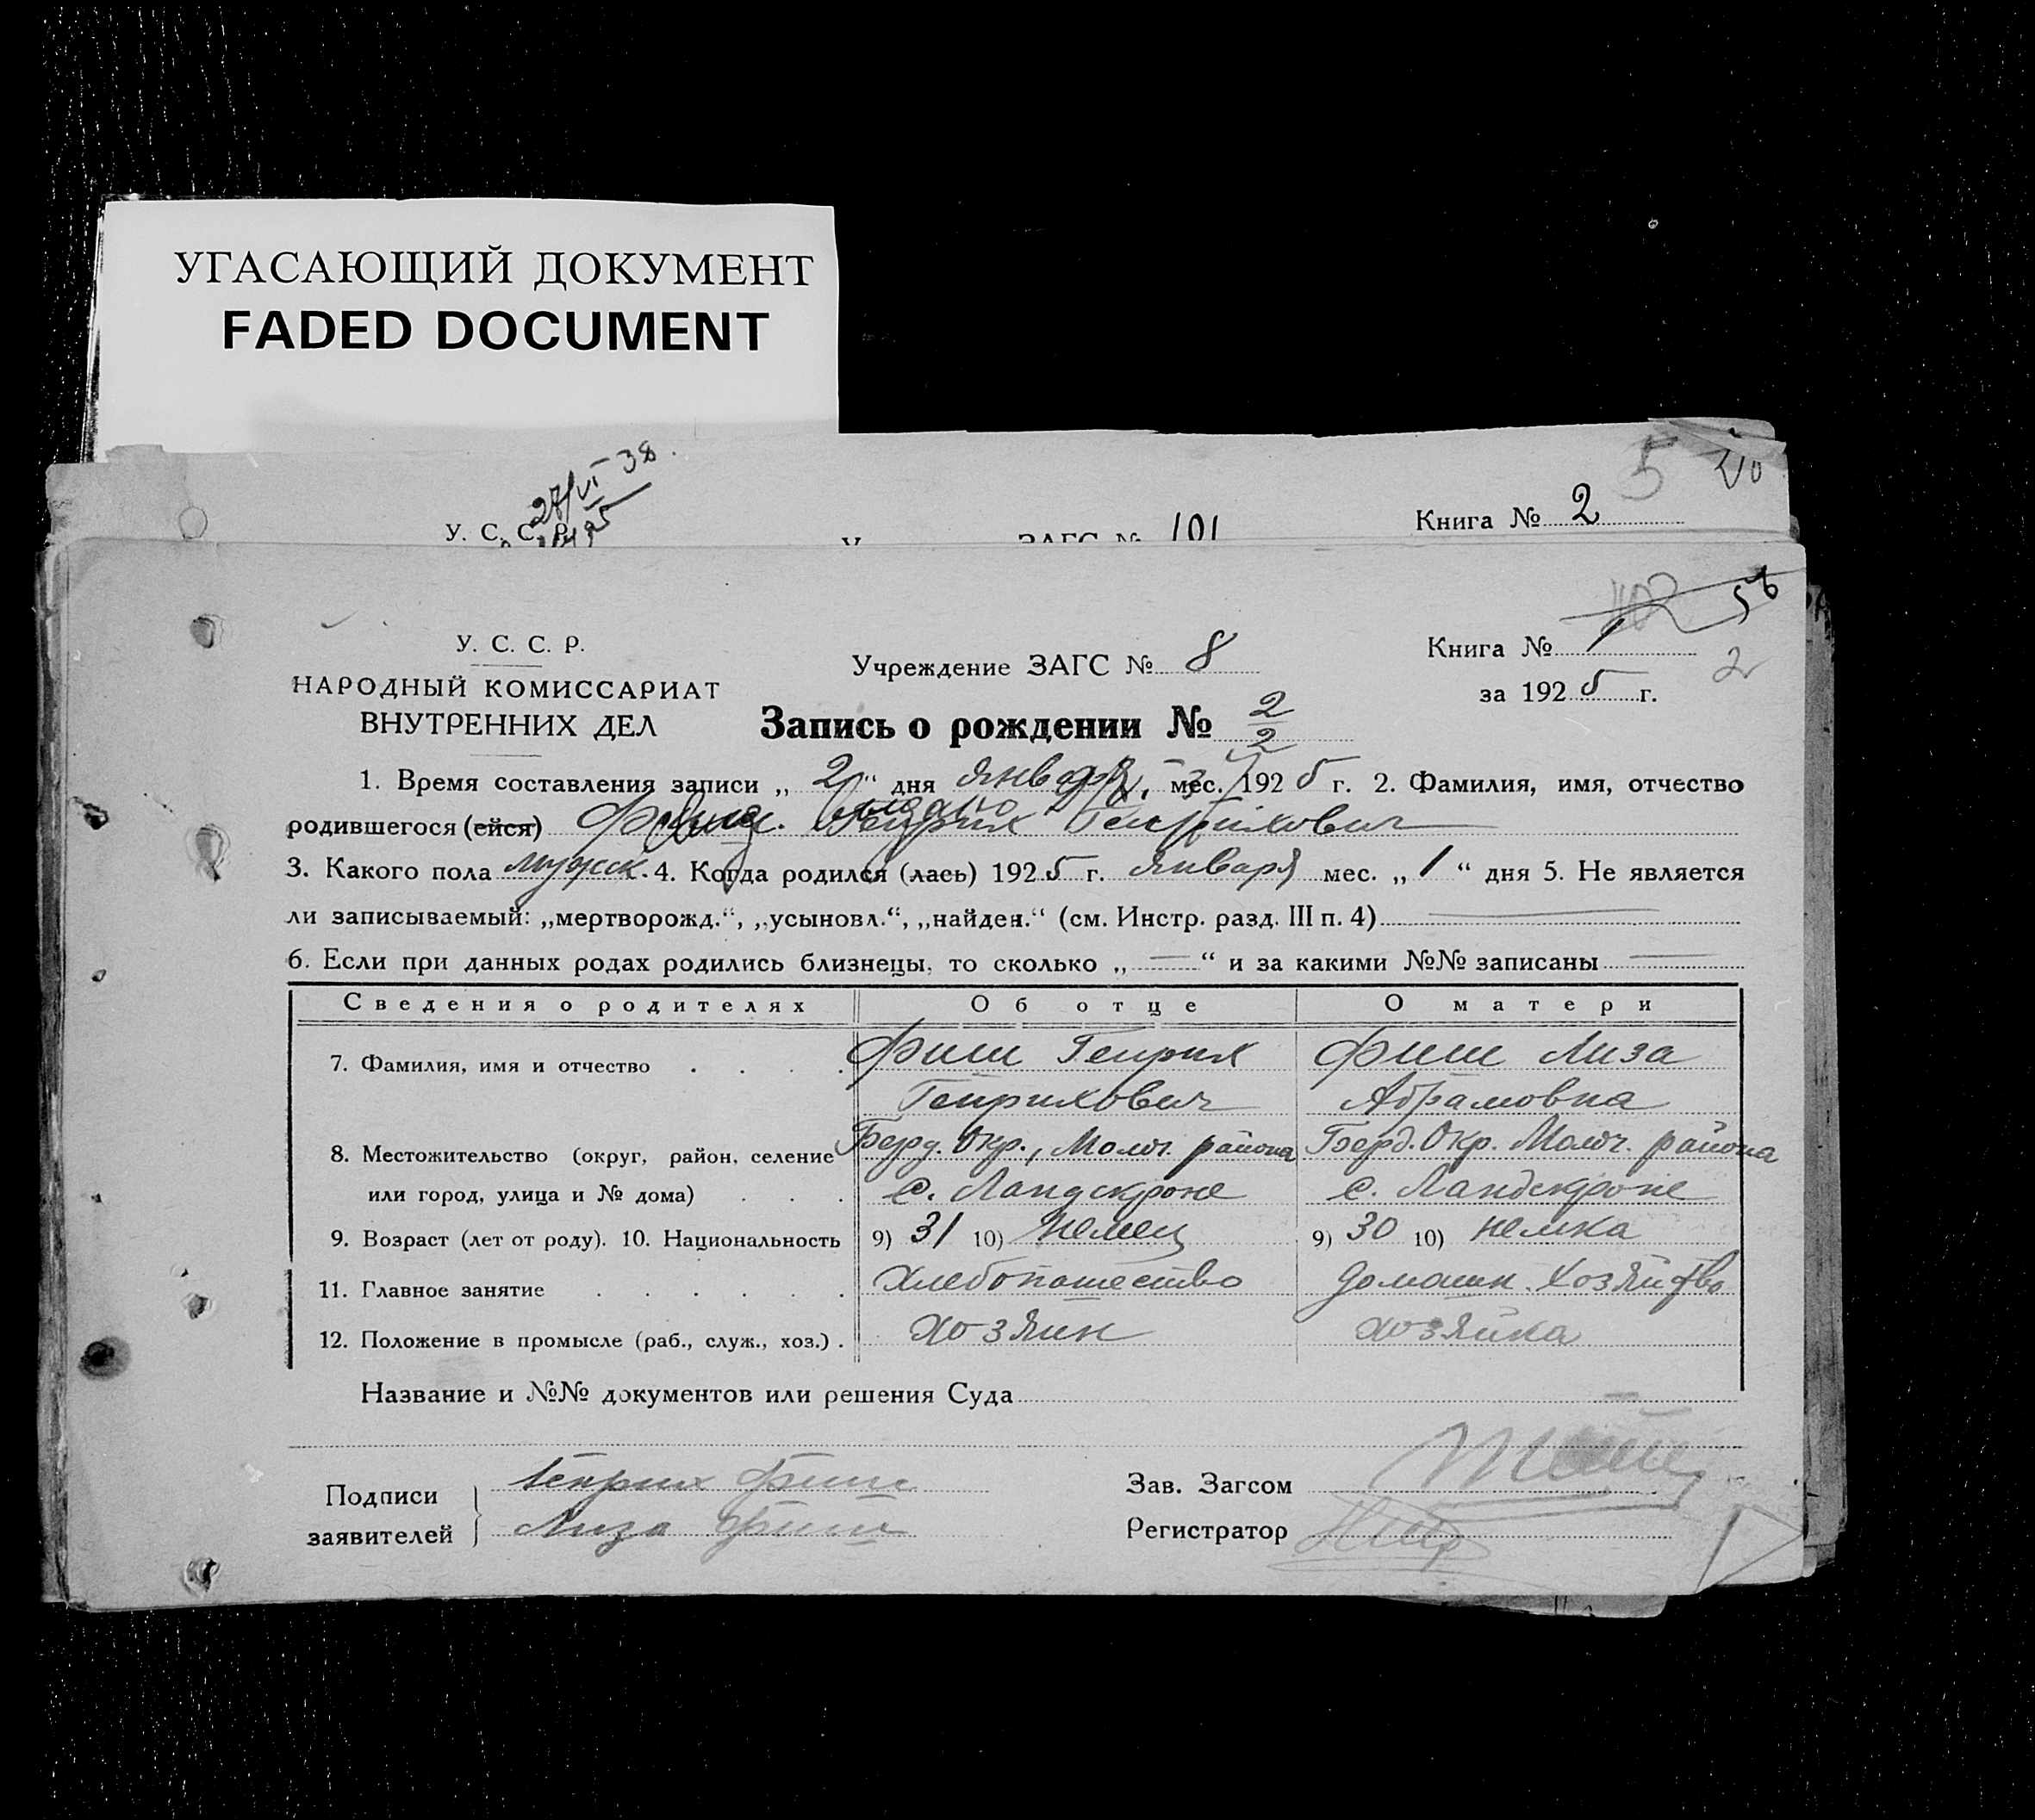 УГАСАЮЩИЙ ДОКУМЕНТ
FADED DOCUMENT
27/VI 38
У. С. С. Р.
ЗАГС № 101
Книга № 2
5
У. С. С. Р.
НАРОДНЫЙ КОМИССАРИАТ
ВНУТРЕННИХ ДЕЛ
Учреждение ЗАГС № 8
Книга № 1
2
за 1925 г.
Запись о рождении № 2/2
1. Время составления записи „ 2 “ дня января мес. 1925 г. 2. Фамилия, имя, отчество
родившегося (ейся) Фиш Генрих Генрихович
3. Какого пола мужск. 4. Когда родился (лась) 1925 г. января мес. „ 1 “ дня 5. Не является
ли записываемый: „мертворожд.“, „усыновл.“, „найден.“ (см. Инстр. разд. III п. 4) —
6. Если при данных родах родились близнецы, то сколько „ — “ и за какими №№ записаны —
Сведения о родителях Об отце О матери
7. Фамилия, имя и отчество . . . . Фиш Генрих Фиш Лиза
Генрихович Абрамовна
8. Местожительство (округ, район, селение Берд. Окр., Молоч. района Берд. Окр. Молоч. района
или город, улица и № дома) . . . с. Ландскроне с. Ландскроне
9. Возраст (лет от роду). 10. Национальность 9) 31 10) немец 9) 30 10) немка
11. Главное занятие . . . . . . хлебопашество домашн. хозяйство
12. Положение в промысле (раб., служ., хоз.) . хозяин хозяйка
Название и №№ документов или решения Суда
Подписи заявителей
Генрих Фиш
Лиза Фиш
Зав. Загсом
Регистратор